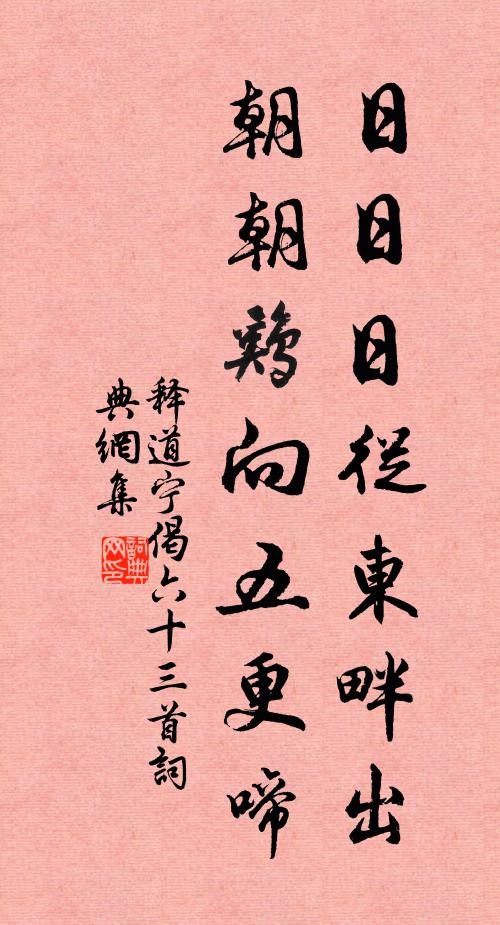 日日日從東畔出
朝朝鷄向五更啼
释道宁偈六十三首詞
典網集
詞典
网印